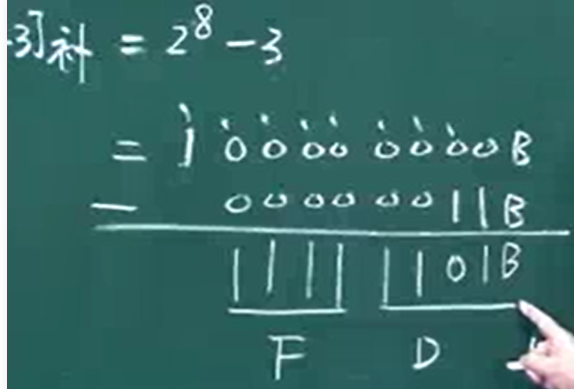 -3]补 = 2⁸ - 3
= 1 0000 0000 B
- 0000 0011 B
1111 1101 B
F D